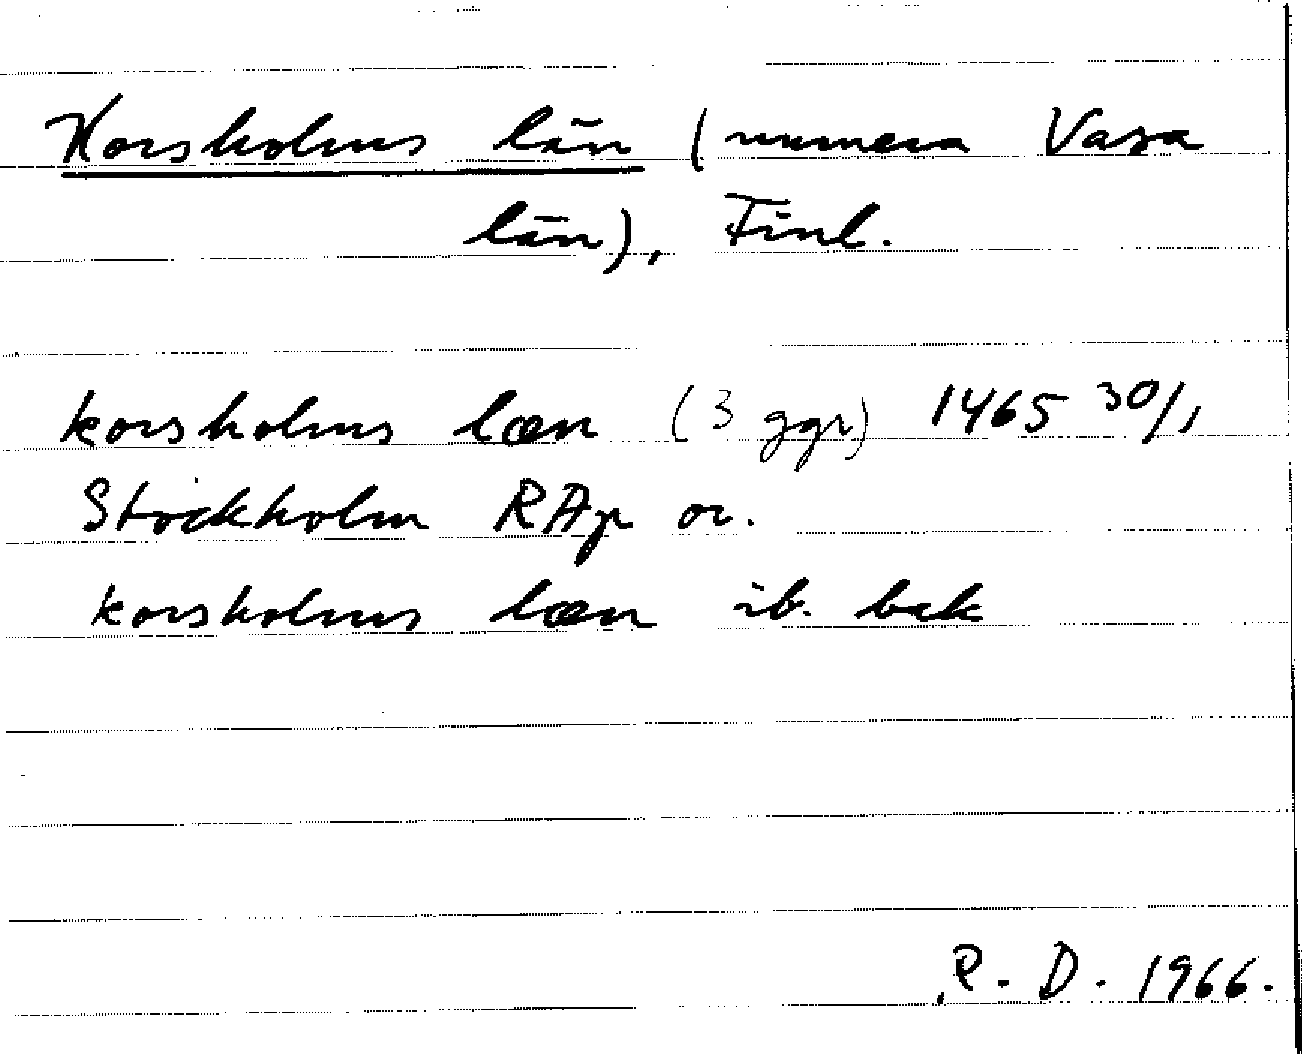 Korsholms län (numera Vasa
län), Finl.
korsholms læn (3 ggr) 1465 30/1
Stockholm RAp or.
korsholms læn ib. bak
R. D. 1966.